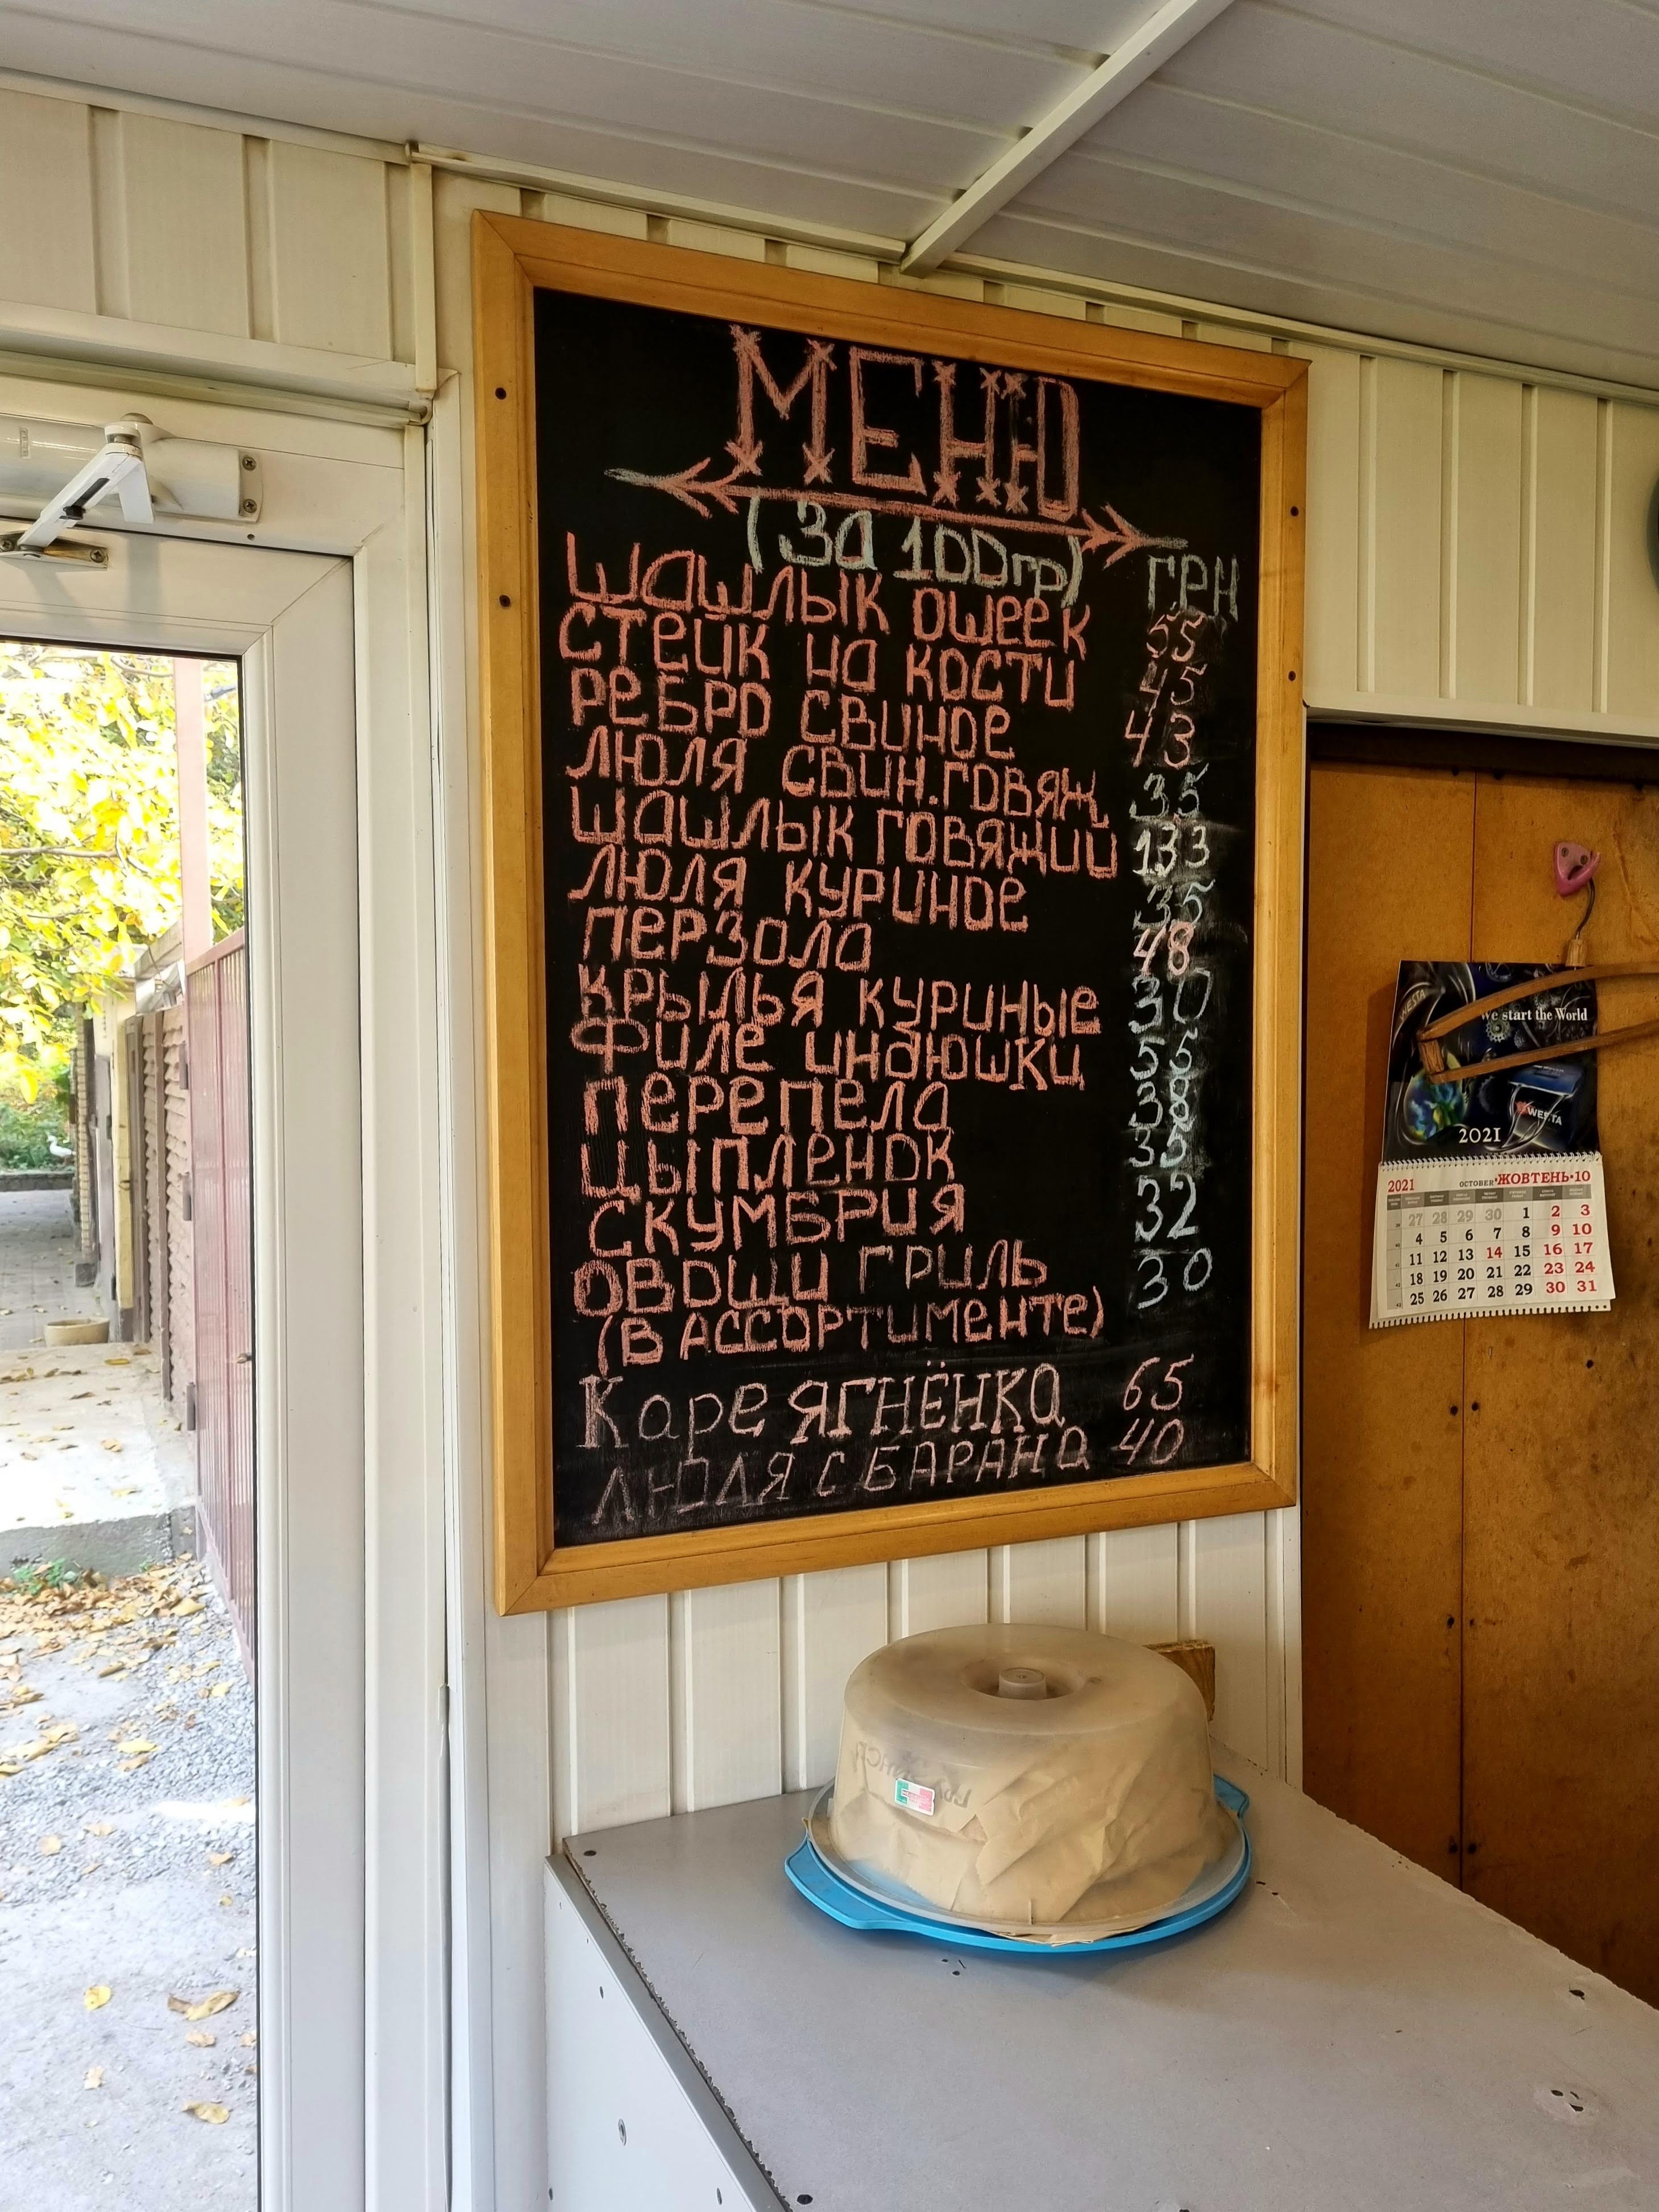 МЕНЮ
(ЗА 100гр) грн
ШАШЛЫК ОШЕЕК 55
СТЕЙК НА КОСТИ 45
РЕБРО СВИНОЕ 43
ЛЮЛЯ СВИН.ГОВЯЖ 35
ШАШЛЫК ГОВЯЖИЙ 133
ЛЮЛЯ КУРИНОЕ 35
ПЕРЗОЛА 48
КРЫЛЬЯ КУРИНЫЕ 30
ФИЛЕ ИНДЮШКИ 55
ПЕРЕПЕЛА 38
ЦЫПЛЕНОК 35
СКУМБРИЯ 32
ОВОЩИ ГРИЛЬ 30
(В АССОРТИМЕНТЕ)
Каре ЯГНЁНКА 65
ЛЮЛЯ С БАРАНА 40
WESTA
We start the World
WESTA
2021
2021 OCTOBER ЖОВТЕНЬ·10
27 28 29 30 1 2 3
4 5 6 7 8 9 10
11 12 13 14 15 16 17
18 19 20 21 22 23 24
25 26 27 28 29 30 31